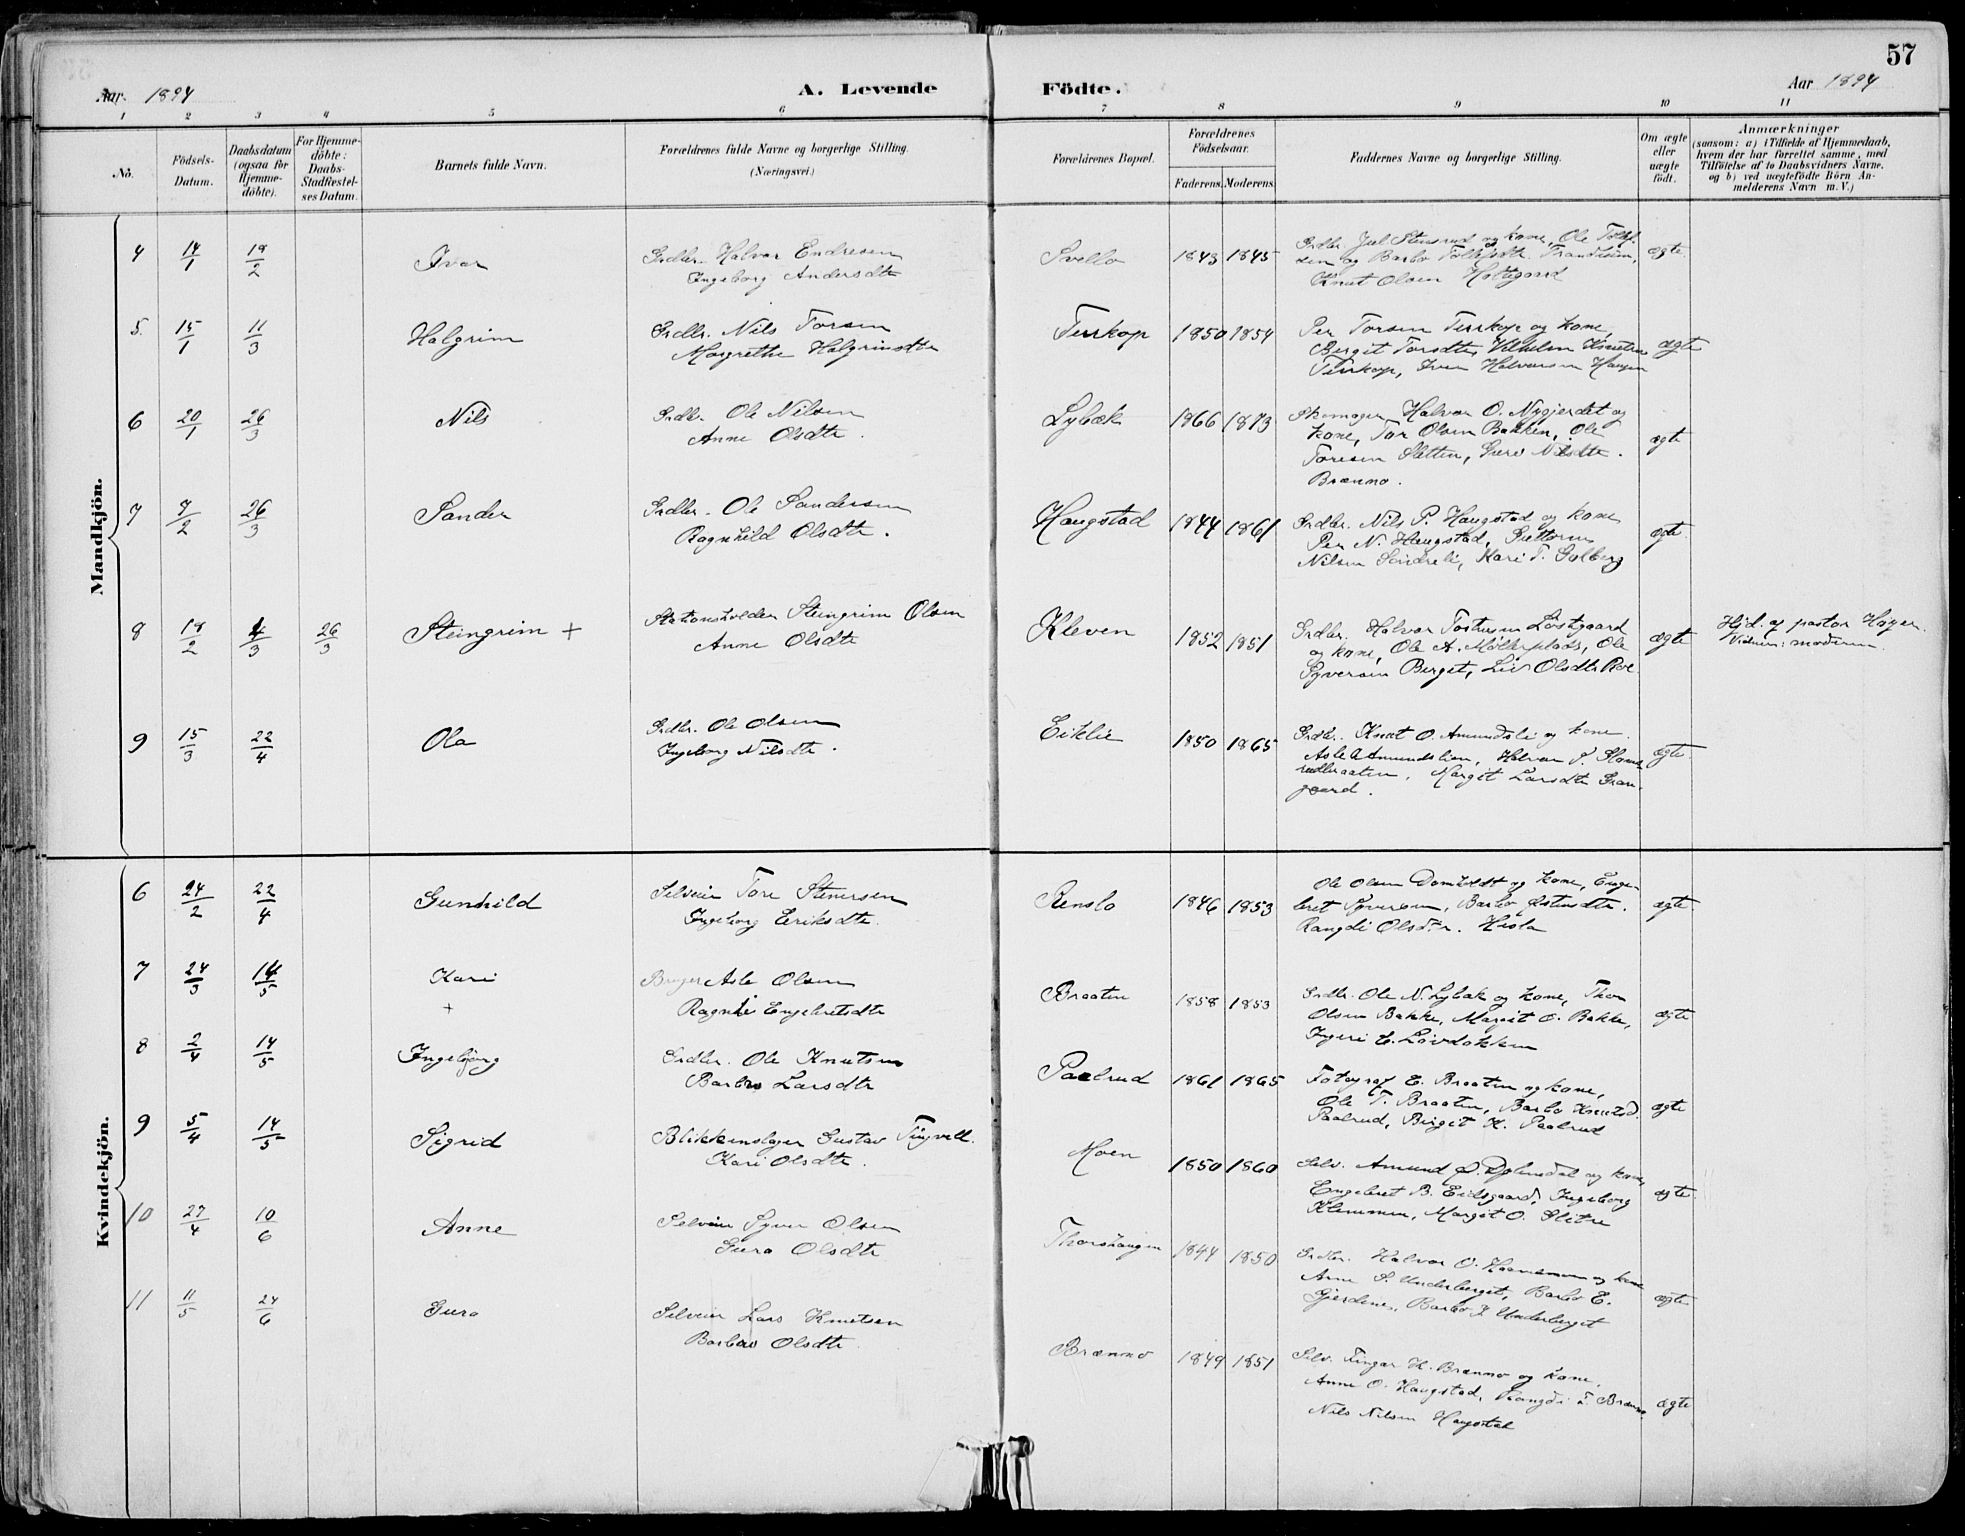 57
Aar. 1894
A. Levende Födte.
Aar 1894
1 2 3 4 5 6 7 8 9 10 11
No.
Födsels-Datum.
Daabsdatum (ogsaa for Hjemme-döbte).
For Hjemme-döbte: Daabs-Stadfæstel-ses Datum.
Barnets fulde Navn.
Forældrenes fulde Navne og borgerlige Stilling.
(Næringsvei.)
Forældrenes Bopæl.
Forældrenes Födselsaar.
Faderens. Moderens.
Faddernes Navne og borgerlige Stilling.
Om ægte eller uægte födt.
Anmærkninger
(saasom: a) i Tilfælde af Hjemmedaab,
hvem der har forrettet samme, med
Tilföielse af to Daabsvidners Navne.
og b) ved uægtefödte Börn An-
melderens Navn m. V.)
Mandkjön.
4 14/1 18/2 Ivar
Grdbr. Halvor Endresen
Ingeborg Andersdtr
Svello 1843 1845
Grdbr. Juel Stensrud og kone, Ole Tollef-
sen og Barbo Tollefsdtr. Trandisen,
Knut Olsen Holtegaard
ægte.
5. 15/1 11/3 Halgrim
Grdbr. Nils Torsen
Margrethe Halgrimsdtr
Turkop 1850 1854
Per Torsen Turkop og kone,
Bergit Torsdtr, Vilhelm Knutsen
Turkop, Iver Halvorsen Haugen
ægte
6 20/1 26/3 Nils
Grdbr. Ole Nilsen
Anne Olsdtr.
Lybæk 1866 1873
Skomager Halvor O. Nygjerdet og
kone, Tor Olsen Bakken, Ole
Toresen Sletten, Guro Nilsdtr.
Brænno.
ægte
7 9/2 26/3 Sander
Grdbr. Ole Sandersen
Ragnhild Olsdtr.
Haugstad 1844 1861
Grdbr. Nils P. Haugstad og kone
Per N. Haugstad, Guttorm
Nilsen Sindreli, Kari T. Golberg
ægte
8 18/2 4/3 26/3 Steingrim +
Stationsholder Steingrim Olsen
Anne Olsdtr
Kleven 1852 1851
Grdbr. Halvor Tostensen Løstegaard
og kone, Ole A. Møllerplads, Ole
Syversen Berget, Liv Olsdtr Roe
ægte
Hjd. af pastor Høyer.
Vidner: moderen
9 15/3 22/4 Ola
Grdbr. Ole Olsen
Ingeborg Nilsdtr.
Eiklie 1850 1865
Grdb. Knut O. Amundsli og kone.
Asle A Amundslien, Halvor
Margit Larsdtr Gran-
gaard.
ægte
Kvindekjön.
6 24/2 22/4 Gunhild
Selveier Tore Stenersen
Ingeborg Eriksdtr.
Renslo 1846 1853
Ole Olsen Domholdt og kone, Enge-
bret Syversen, Barbo Østensdtr.
Rangdi Olsdtr. Hesla
ægte
7 24/3 14/5 Kari
+
Bruger Asle Olsen
Ragndi Engebretsdtr
Braaten 1858 1853
Grdbr. Ole N. Lybæk og kone, Thor
Olsen Bakke, Margit O. Bakke,
Ingeri E. Løvdokken
ægte
8 2/4 14/5 Ingebjørg
Grdbr. Ole Knutsen
Barbro Larsdtr
Paalrud 1861 1865
Fotograf E. Braaten og kone,
Ole T. Braaten, Barbo Knutsd.
Paalrud, Birgit K. Paalrud
ægte
9 5/4 14/5 Sigrid
Blikkenslager Gustav Tingvell.
Kari Olsdtr.
Moen 1850 1860
Selv. Amund og kone,
Engebret B. Eidsgaard, Ingeborg
Klemmen, Margit O. Slitre
ægte
10 27/4 10/6 Anne
Selveier Syver Olsen
Guro Olsdtr
Thorshaugen 1844 1850
Grdbr. Halvor O. og kone
Anne S. Underberget, Barbo E.
Gjerdene, Barbo Underberget
ægte
11 11/5 24/6 Guro
Selveier Lars Knutsen
Barbro Olsdtr.
Brænno 1849 1851
Selv. Tingar K. Brænno og kone.
Anne O. Haugstad, Rangdi T. Brænno
Nils Nilsen Haugstad
ægte